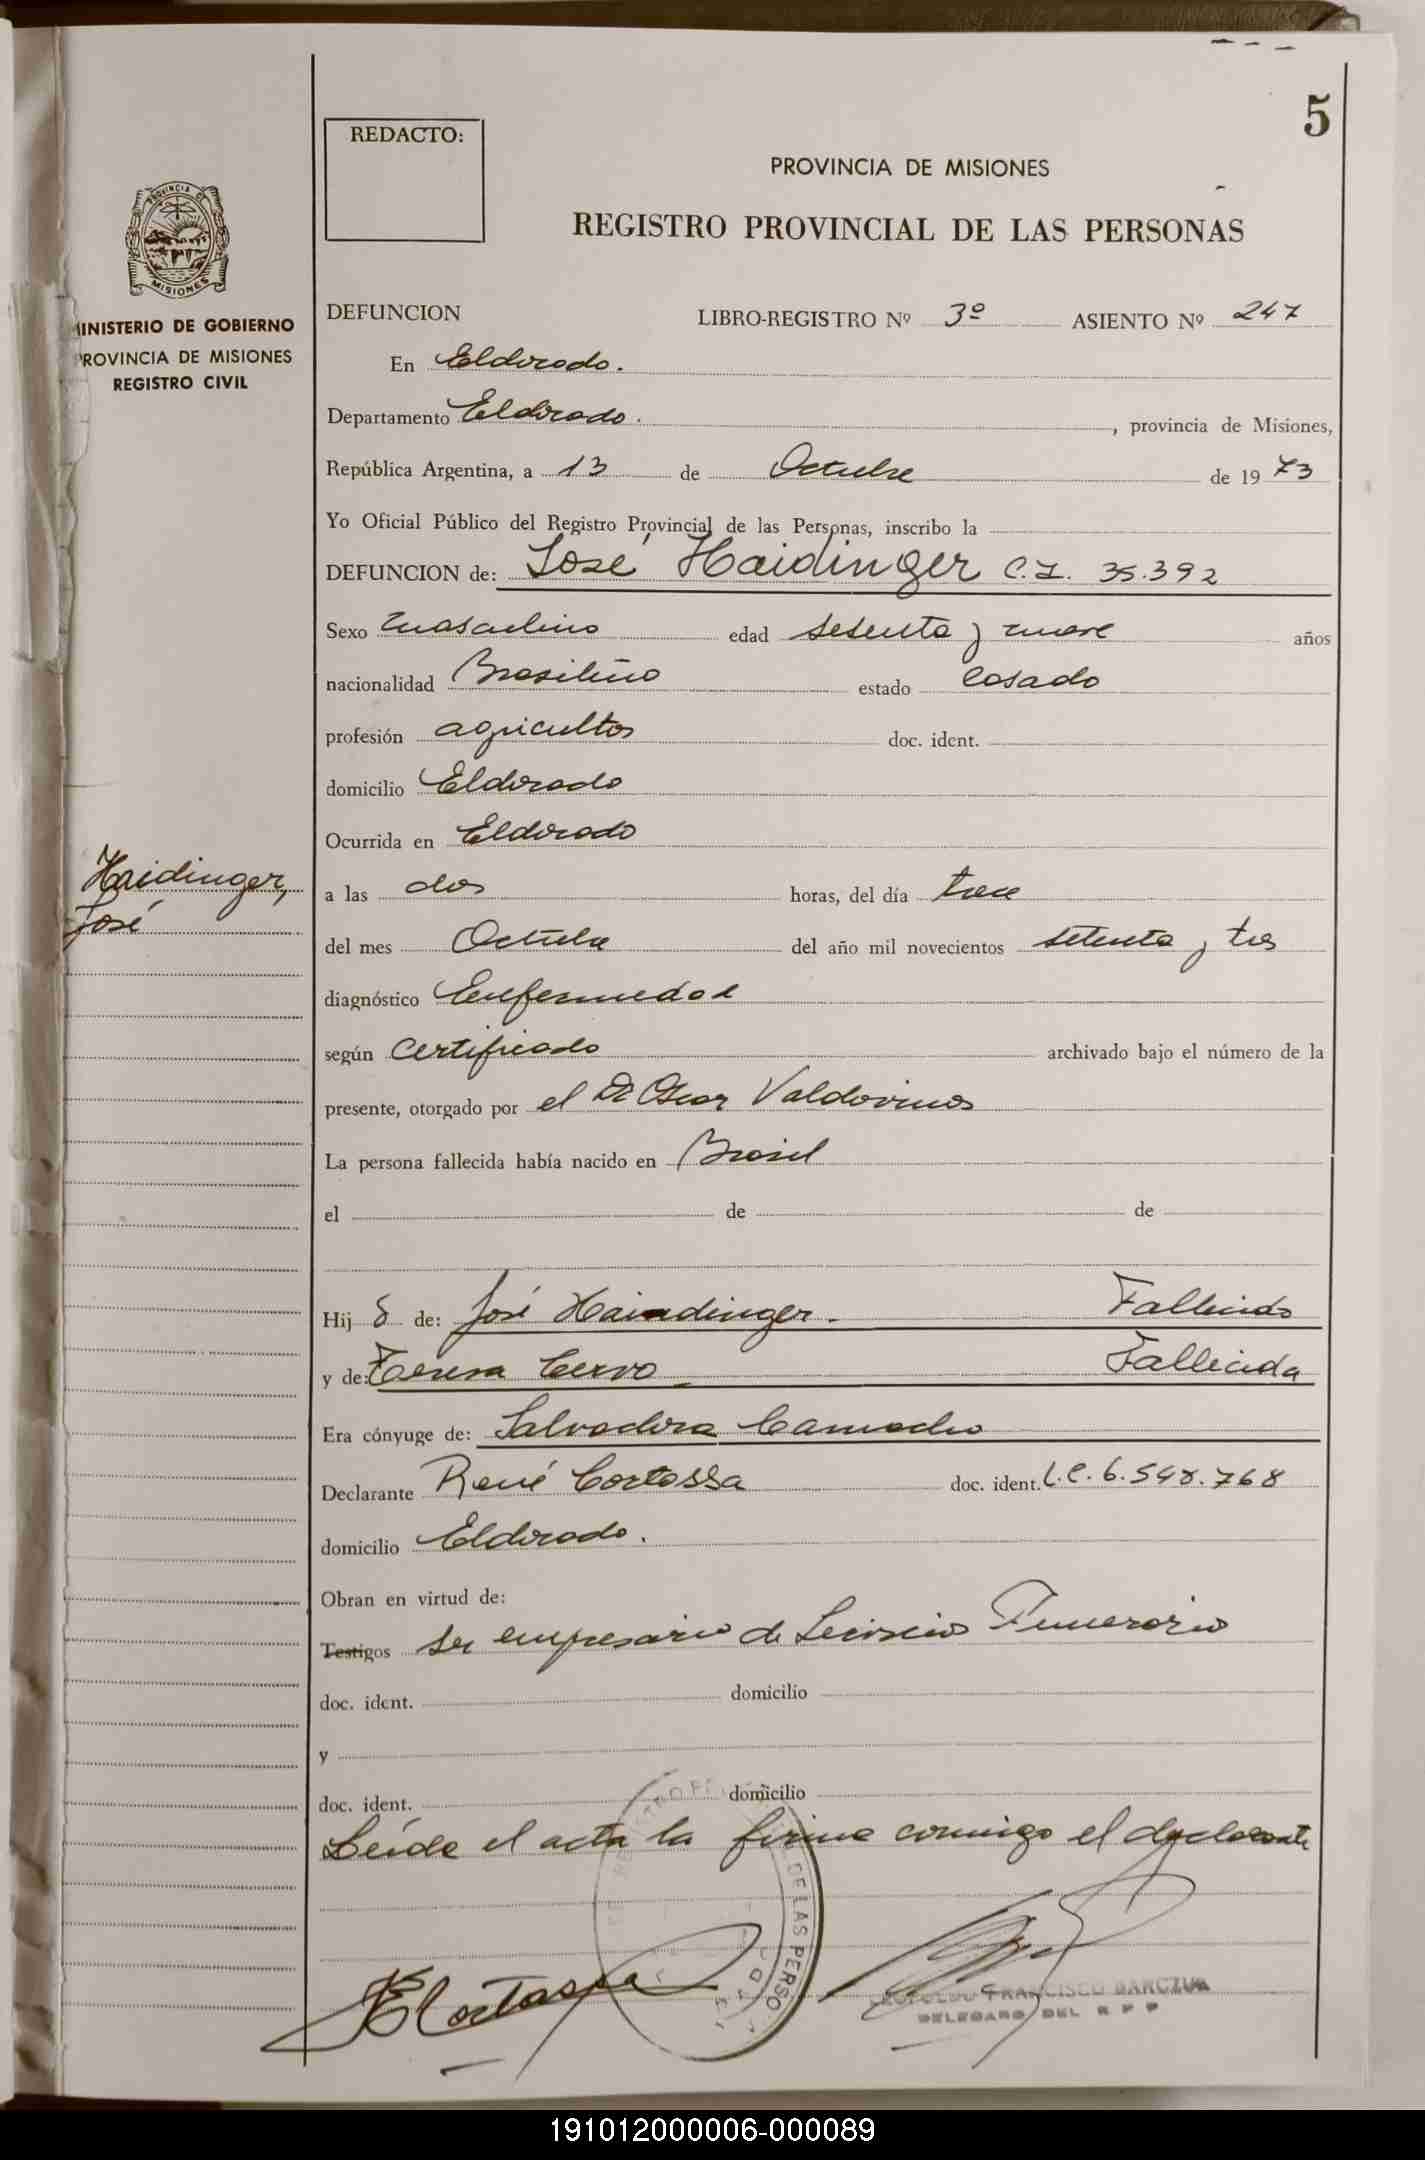 5
REDACTO:
PROVINCIA DE MISIONES
REGISTRO PROVINCIAL DE LAS PERSONAS
PROVINCIA DE
MISIONES
MINISTERIO DE GOBIERNO
PROVINCIA DE MISIONES
REGISTRO CIVIL
DEFUNCION LIBRO-REGISTRO Nº 3º ASIENTO Nº 247
En Eldorado.
Departamento Eldorado. , provincia de Misiones,
República Argentina, a 13 de Octubre de 1973
Yo Oficial Público del Registro Provincial de las Personas, inscribo la
DEFUNCION de: José Haidinger C.I. 35.392
Sexo masculino edad setenta y nueve años
nacionalidad Brasileño estado Casado
profesión agricultor doc. ident.
domicilio Eldorado
Ocurrida en Eldorado
Haidinger,
José
a las dos horas, del día trece
del mes Octubre del año mil novecientos setenta y tres
diagnóstico Enfermedad
según Certificado archivado bajo el número de la
presente, otorgado por el Dr Oscar Valdovinos
La persona fallecida había nacido en Brasil
el de de
Hij o de: José Haindinger. Fallecido
y de: Teresa Cervo Fallecida
Era cónyuge de: Salvadora Camacho
Declarante René Cortassa doc. ident. L.E. 6.548.768
domicilio Eldorado.
Obran en virtud de:
Testigos ser empresario de Servicio Funerario
doc. ident. domicilio
y
doc. ident. domicilio
Leída el acta la firma conmigo el declarante
DE LAS PERSO
FRANCISCO
DELEGADO DEL R P P
191012000006-000089